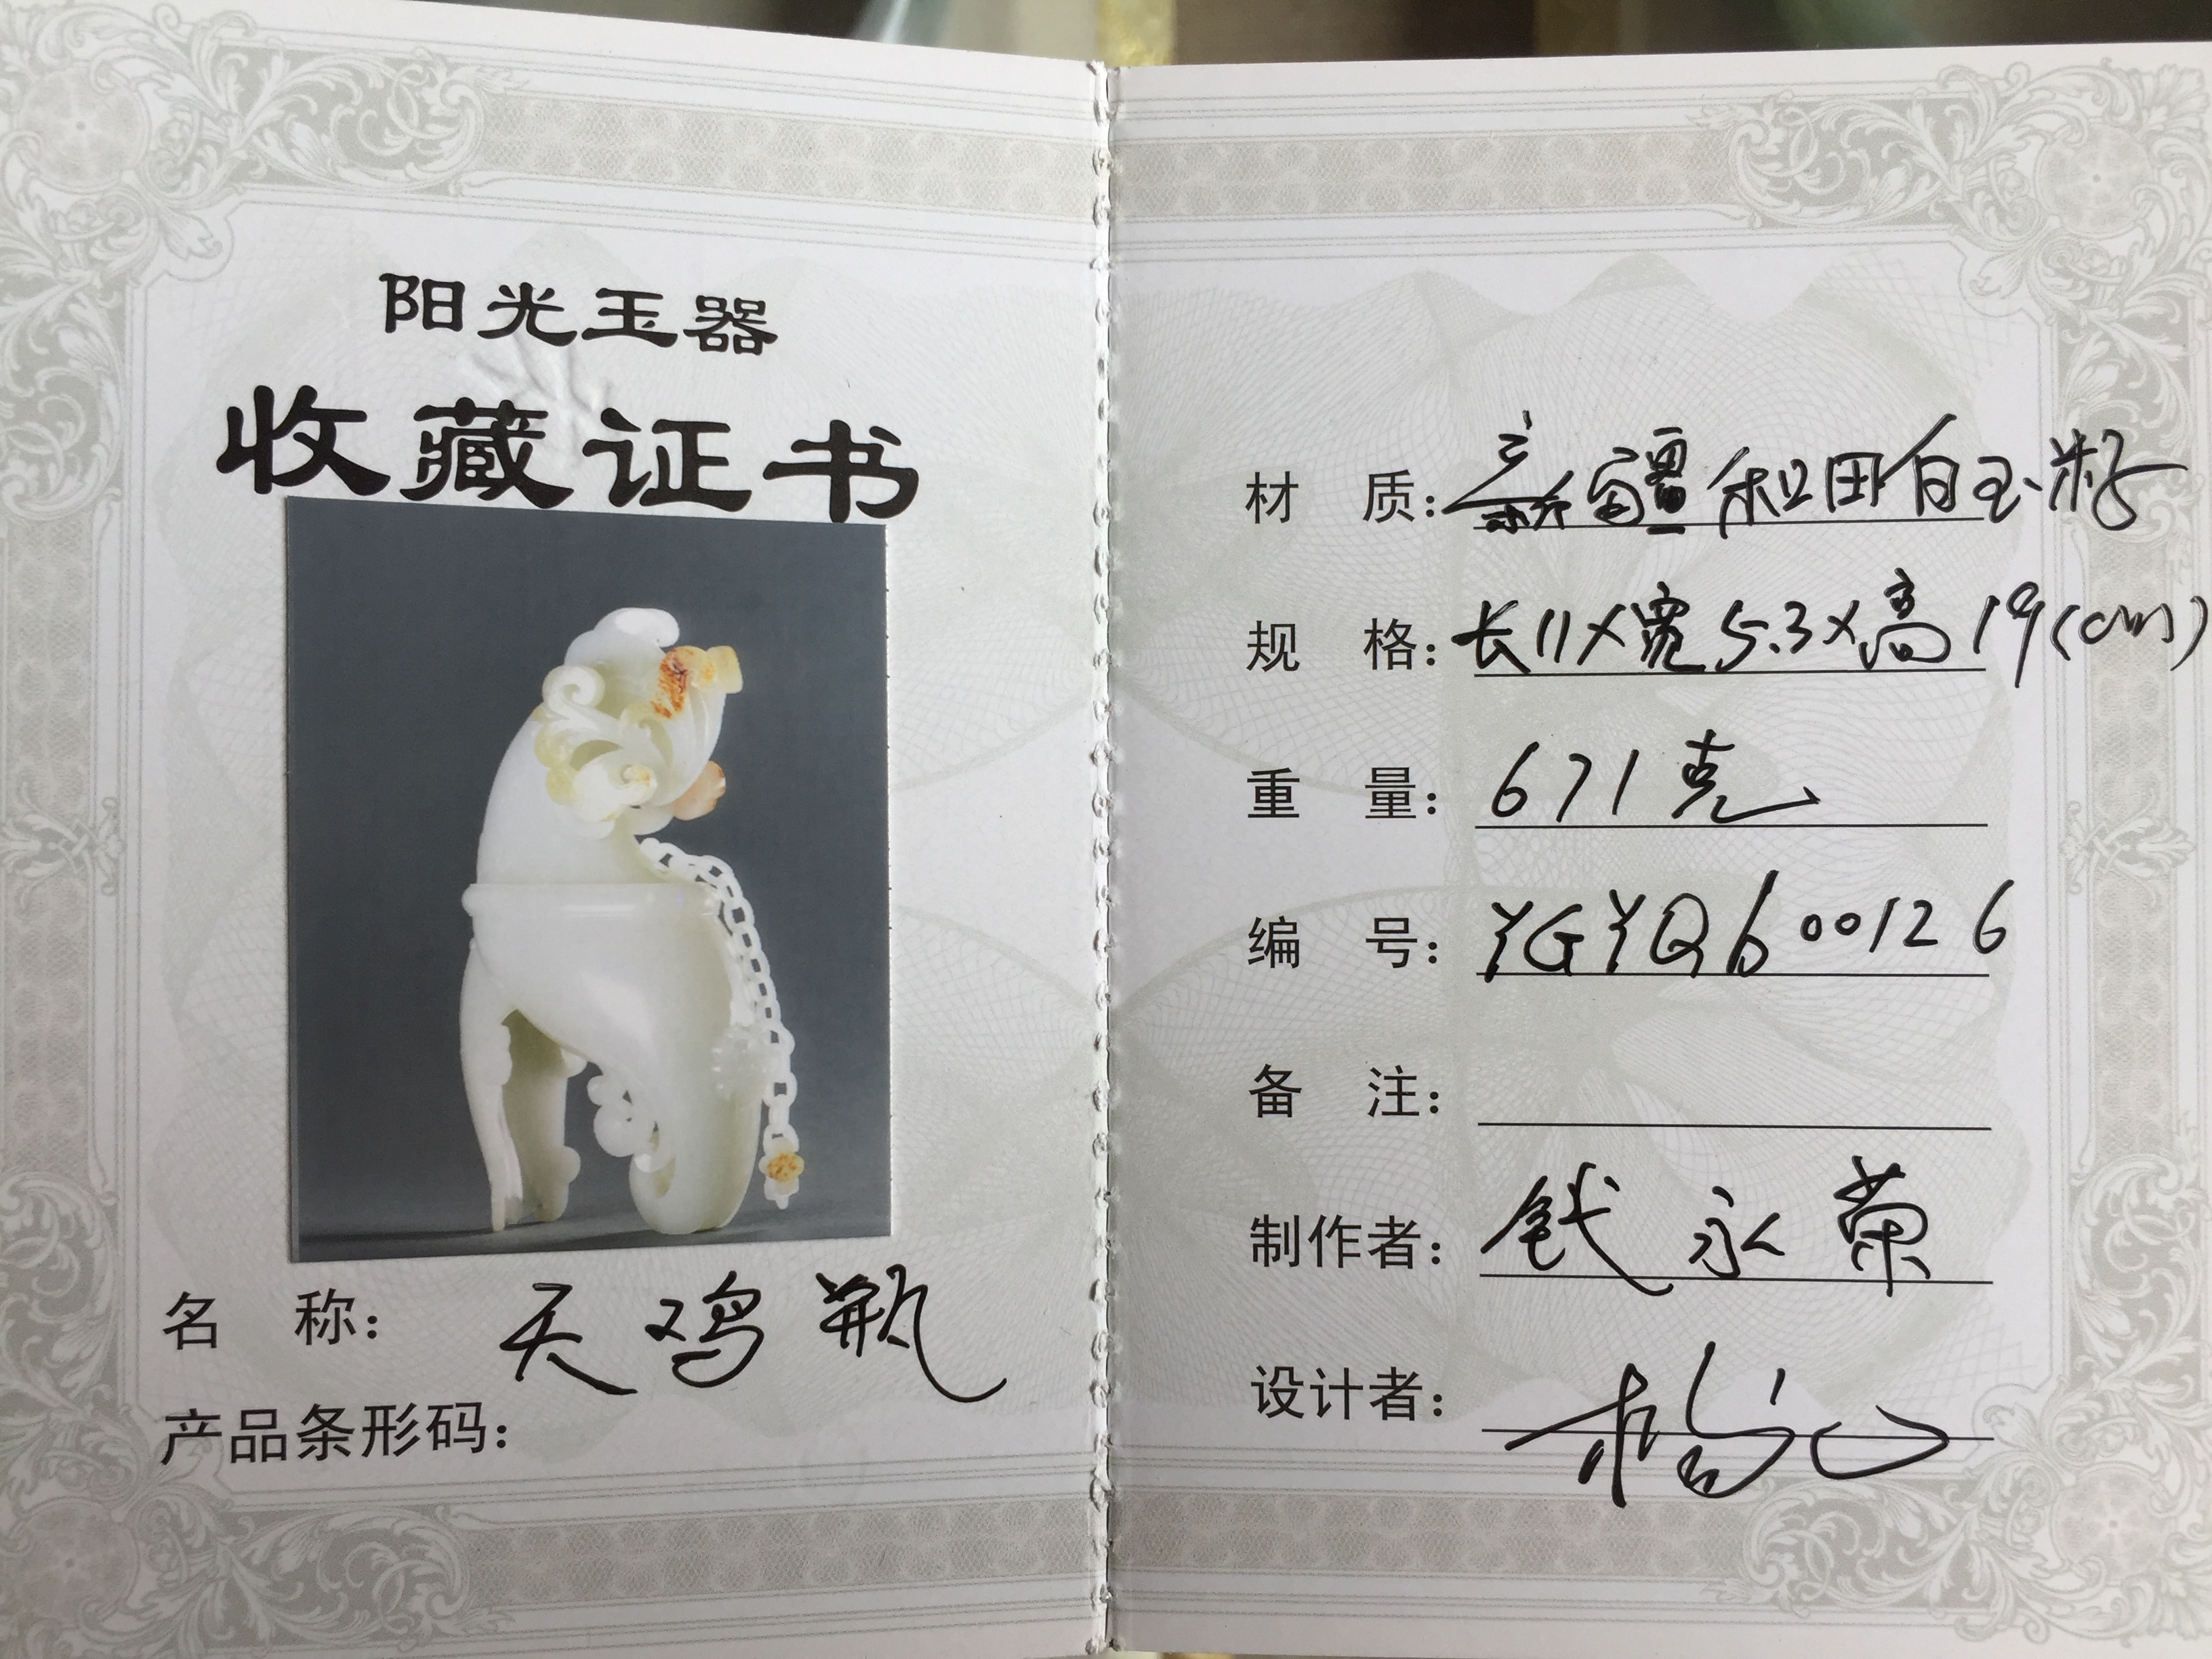 阳光玉器
收藏证书
名 称： 天鸡瓶
产品条形码：
材 质： 新疆和田白玉籽
规 格： 长11×宽5.3×高19(cm)
重 量： 671克
编 号： YGYQ600126
备 注：
制作者： 钱永荣
设计者：